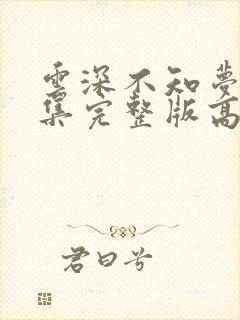 雲深不知夢
集完整版高
君曰兮